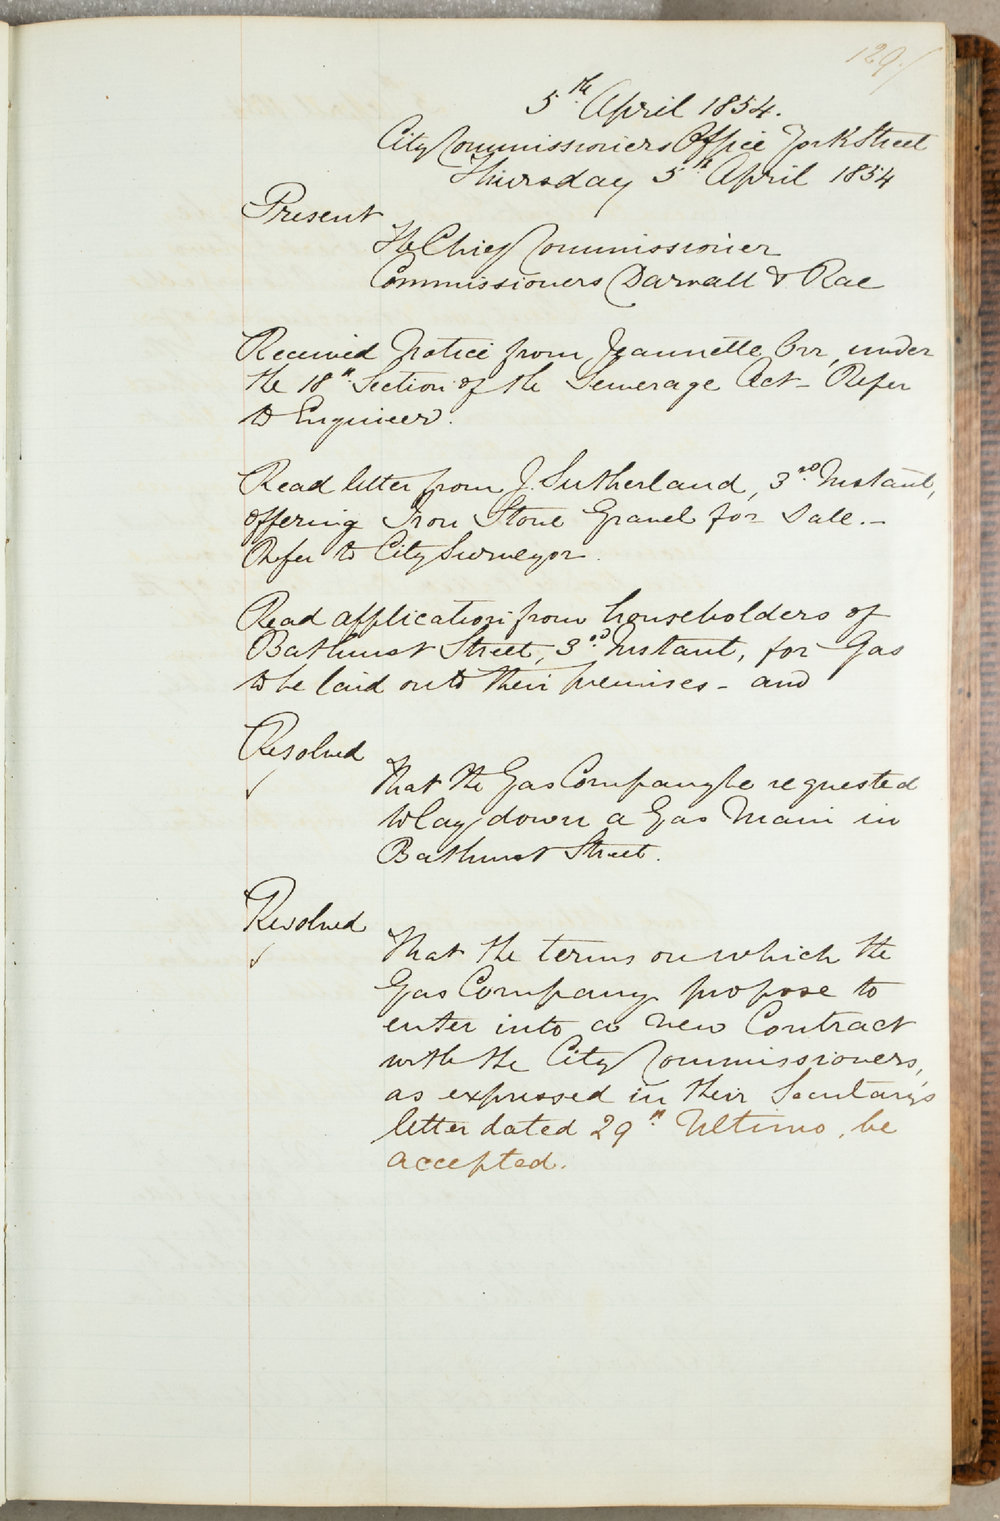 129./
5th April 1854.
City Commissioners Office York Street
Thursday 5th April 1854
Present
The Chief Commissioner
Commissioners Darvall & Rae
Received Notice from Jeannette Orr, under
the 18th Section of the Sewerage Act - Refer
to Engineer.
Read letter from J. Sutherland, 3rd Instant,
offering Iron Stone Gravel for Sale. -
Refer to City Surveyor.
Read application from householders of
Bathurst Street, 3rd Instant, for Gas
to be laid on to their premises - and
Resolved
That the Gas Company be requested
to lay down a Gas Main in
Bathurst Street.
Resolved
That the terms on which the
Gas Company propose to
enter into a new Contract
with the City Commissioners,
as expressed in their Secretary's
letter dated 29th Ultimo, be
accepted.